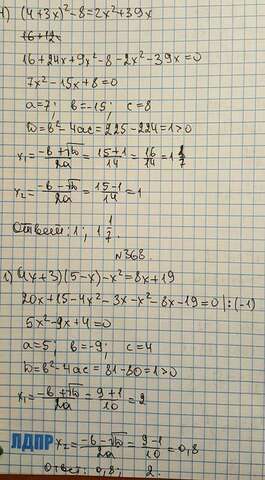 4) (4+3x)²-8=2x²+39x
16+12
16+24x+9x²-8-2x²-39x=0
7x²-15x+8=0
a=7; b=-15; c=8
D=b²-4ac=225-224=1>0
x₁=(-b+√D)/2a=(15+1)/14=16/14=1 1/7
x₂=(-b-√D)/2a=(15-1)/14=1
Ответ: 1; 1 1/7.
№368.
1) (4x+3)(5-x)-x²=8x+19
20x+15-4x²-3x-x²-8x-19=0 |:(-1)
5x²-9x+4=0
a=5; b=-9; c=4
D=b²-4ac=81-80=1>0
x₁=(-b+√D)/2a=(9+1)/10=2
ЛДПР x₂=(-b-√D)/2a=(9-1)/10=0,8
Ответ: 0,8; 2.